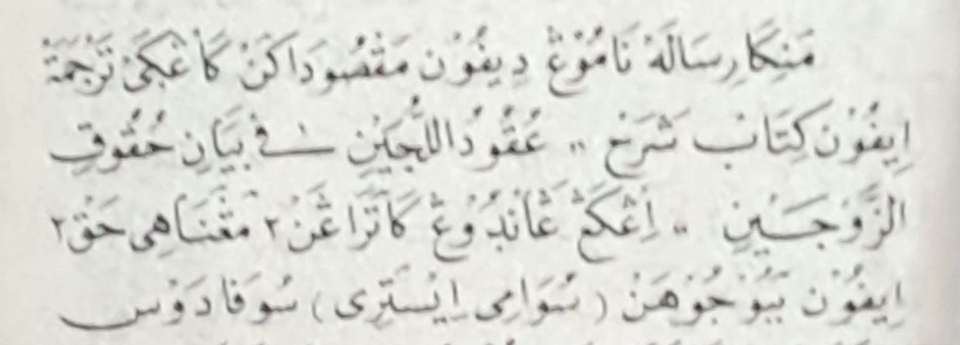 مَنِيكَا رِسَالَةْ نَامُوْڠْ دِيفُوْن مَقْصُودَاكَنْ كَاڠْكَيْ تَرْجَمَةْ
اِيفُوْن كِتَابْ شَرَحْ ,, عُقُودُ اللُّجَيْنِ فِيْ بَيَانِ حُقُوقِ
الزَّوْجَيْنِ ,, اِڠْكَڠْ ڠَانْدُوْڠْ كَاتَرَاڠَنْ٢ مَڠْنَاهِى حَقْ٢
اِيفُوْن بَيُوْجُوْهَنْ (سُوَامِى اِيْسْتَرِى) سُوفَادَوْس